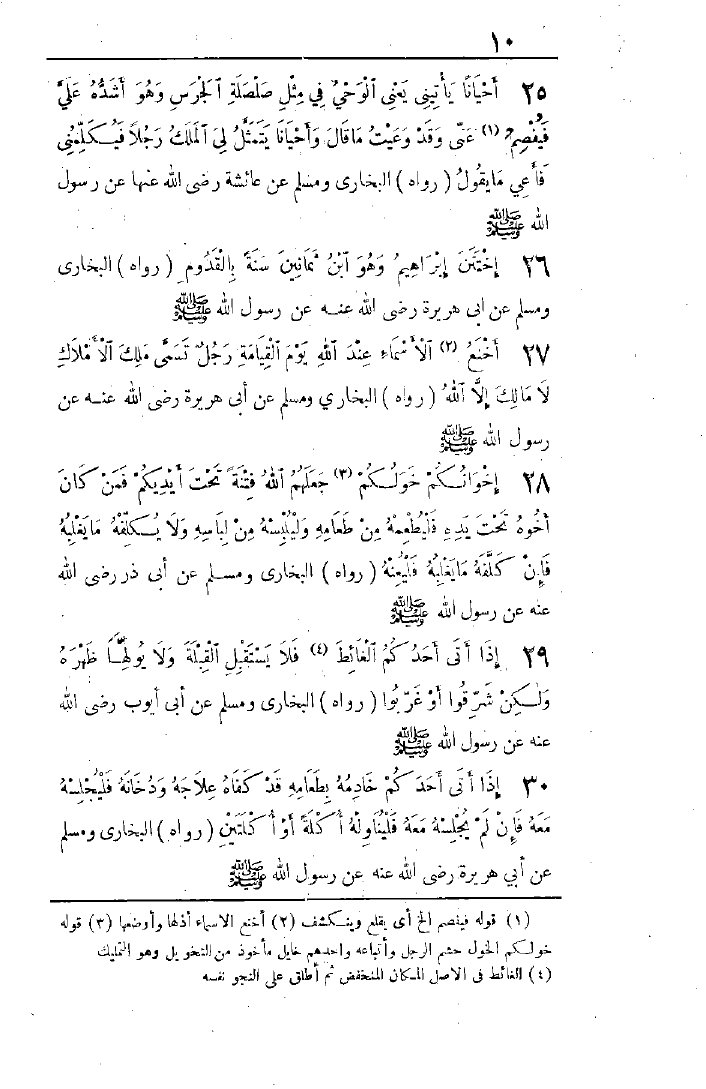 ١٠
٢٥ أَحْيَانًا يَأْتِينِى يَعْنِى ٱلْوَحْيُ فِي مِثْلِ صَلْصَلَةِ ٱلْجَرَسِ وَهُوَ أَشَدُّهُ عَلَيَّ
فَيُفْصِمُ (١) عَنِّى وَقَدْ وَعَيْتُ مَا قَالَ وَأَحْيَانًا يَتَمَثَّلُ لِىَ ٱلْمَلَكُ رَجُلاً فَيُكَلِّمُنِى
فَأَعِي مَا يَقُولُ ( رواه ) البخارى ومسلم عن عائشة رضى الله عنها عن رسول
الله ﷺ
٢٦ إِخْتَتَنَ إِبْرَاهِيمُ وَهُوَ ٱبْنُ ثَمَانِينَ سَنَةً بِالْقَدُومِ ( رواه ) البخارى
ومسلم عن ابى هريرة رضى الله عنه عن رسول الله ﷺ
٢٧ أَخْنَعُ (٢) ٱلْأَسْمَاءِ عِنْدَ ٱللهِ يَوْمَ ٱلْقِيَامَةِ رَجُلٌ تَسَمَّى مَلِكَ ٱلْأَمْلَاكِ
لَا مَالِكَ إِلَّا ٱللهُ ( رواه ) البخاري ومسلم عن أبى هريرة رضى الله عنه عن
رسول الله ﷺ
٢٨ إِخْوَانُكُمْ خَوَلُكُمْ (٣) جَعَلَهُمُ ٱللهُ فِتْنَةً تَحْتَ أَيْدِيكُمْ فَمَنْ كَانَ
أَخُوهُ تَحْتَ يَدِهِ فَلْيُطْعِمْهُ مِنْ طَعَامِهِ وَلْيُلْبِسْهُ مِنْ لِبَاسِهِ وَلَا يُكَلِّفْهُ مَا يَغْلِبُهُ
فَإِنْ كَلَّفَهُ مَا يَغْلِبُهُ فَلْيُعِنْهُ ( رواه ) البخارى ومسلم عن أبى ذر رضى الله
عنه عن رسول الله ﷺ
٢٩ إِذَا أَتَى أَحَدُكُمُ ٱلْغَائِطَ (٤) فَلَا يَسْتَقْبِلِ ٱلْقِبْلَةَ وَلَا يُوَلِّهَا ظَهْرَهُ
وَلٰكِنْ شَرِّقُوا أَوْ غَرِّبُوا ( رواه ) البخارى ومسلم عن أبى أيوب رضى الله
عنه عن رسول الله ﷺ
٣٠ إِذَا أَتَى أَحَدَكُمْ خَادِمُهُ بِطَعَامِهِ قَدْ كَفَاهُ عِلَاجَهُ وَدُخَانَهُ فَلْيُجْلِسْهُ
مَعَهُ فَإِنْ لَمْ يُجْلِسْهُ مَعَهُ فَلْيُنَاوِلْهُ أُكْلَةً أَوْ أُكْلَتَيْنِ ( رواه ) البخارى ومسلم
عن أبي هريرة رضى الله عنه عن رسول الله ﷺ
(١) قوله فيفصم الخ أى يقلع وينكشف (٢) أخنع الاسماء أذلها وأوضعها (٣) قوله
خولكم الخول حشم الرجل وأتباعه واحدهم خايل مأخوذ من التخويل وهو التمليك
(٤) الغائط فى الاصل المكان المنخفض ثم أطلق على النجو نفسه